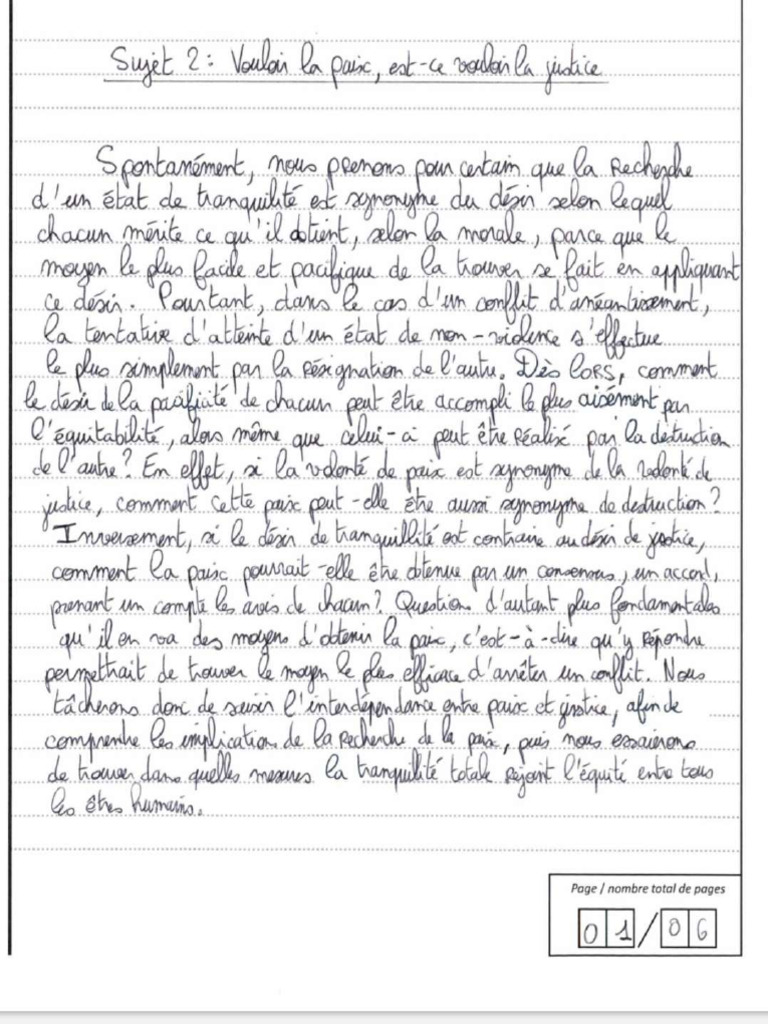 Sujet 2 : Vouloir la paix, est-ce vouloir la justice
Spontanément, nous prenons pour certain que la recherche
d'un état de tranquilité est synonyme du désir selon lequel
chacun mérite ce qu'il obtient, selon la morale, parce que le
moyen le plus facile et pacifique de la trouver se fait en appliquant
ce désir. Pourtant, dans le cas d'un conflit d'anéantissement,
la tentative d'atteinte d'un état de non-violence s'effectue
le plus simplement par la résignation de l'autre. Dès lors, comment
le désir de la pacificité de chacun peut être accompli le plus aisément par
l'équitabilité, alors même que celui-ci peut être réalisé par la destruction
de l'autre ? En effet, si la volonté de paix est synonyme de la volonté de
justice, comment cette paix peut-elle être aussi synonyme de destruction ?
Inversement, si le désir de tranquillité est contraire au désir de justice,
comment la paix pourrait-elle être obtenue par un consensus, un accord,
prenant un compte les avis de chacun ? Question d'autant plus fondamentales
qu'il en va des moyens d'obtenir la paix, c'est-à-dire qu'y répondre
permettrait de trouver le moyen le plus efficace d'arrêter un conflit. Nous
tâcherons donc de saisir l'interdépendance entre paix et justice, afin de
comprendre les implication de la recherche de la paix, puis nous essaierons
de trouver dans quelles mesures la tranquilité totale rejoint l'équité entre tous
les êtres humains.
Page / nombre total de pages
01/06